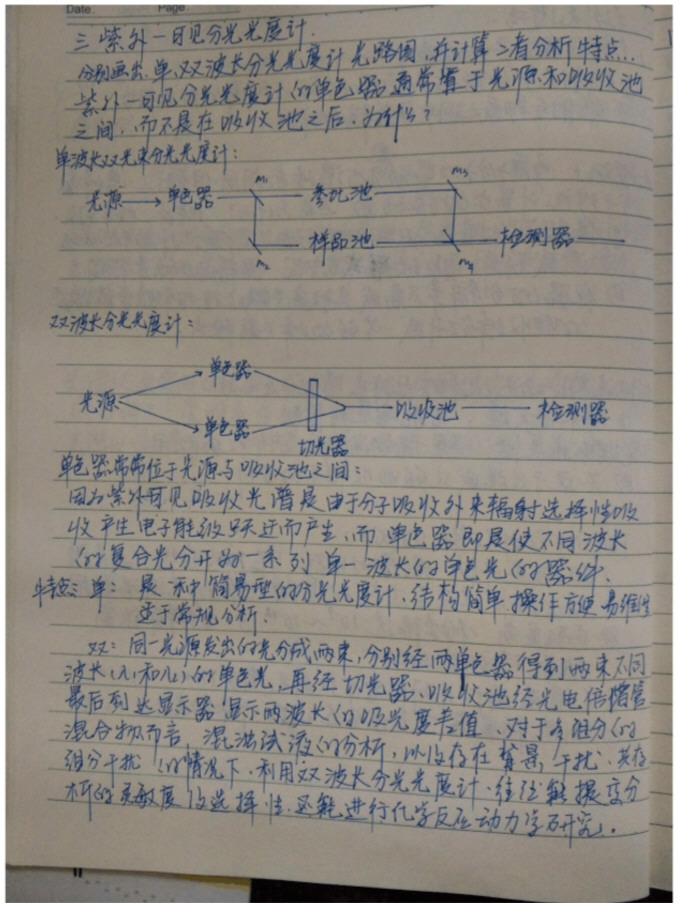 Date. Page.
三紫外-可见分光光度计.
分别画出.单.双波长分光光度计光路图,并计算二者分析特点...
紫外-可见分光光度计的单色器通常置于光源和吸收池
之间,而不是在吸收池之后,为什么?
单波长双光束分光光度计:
m1 m3
光源 单色器 参比池
样品池 检测器
m2 m4
双波长分光光度计:
单色器
光源 吸收池 检测器
单色器
切光器
单色器常常位于光源与吸收池之间:
因为紫外可见吸收光谱是由于分子吸收外来辐射选择性吸
收产生电子能级跃迁而产生,而单色器即是使不同波长
的复合光分开为一系列单一波长的单色光的器件.
特点:单:是一种简易型的分光光度计.结构简单操作方便易维
于常规分析.
双:同一光源发出的光分成两束,分别经两单色器得到两束不同
波长(λ1和λ2)的单色光,再经切光器.吸收池经光电倍增管
最后到达显示器显示两波长的吸光度差值.对于多组分的
混合物而言.混浊试液的分析,以及存在背景干扰.共存
组分干扰的情况下.利用双波长分光光度计.往往能提交分
析的灵敏度及选择性.还能进行化学反应动力学研究.